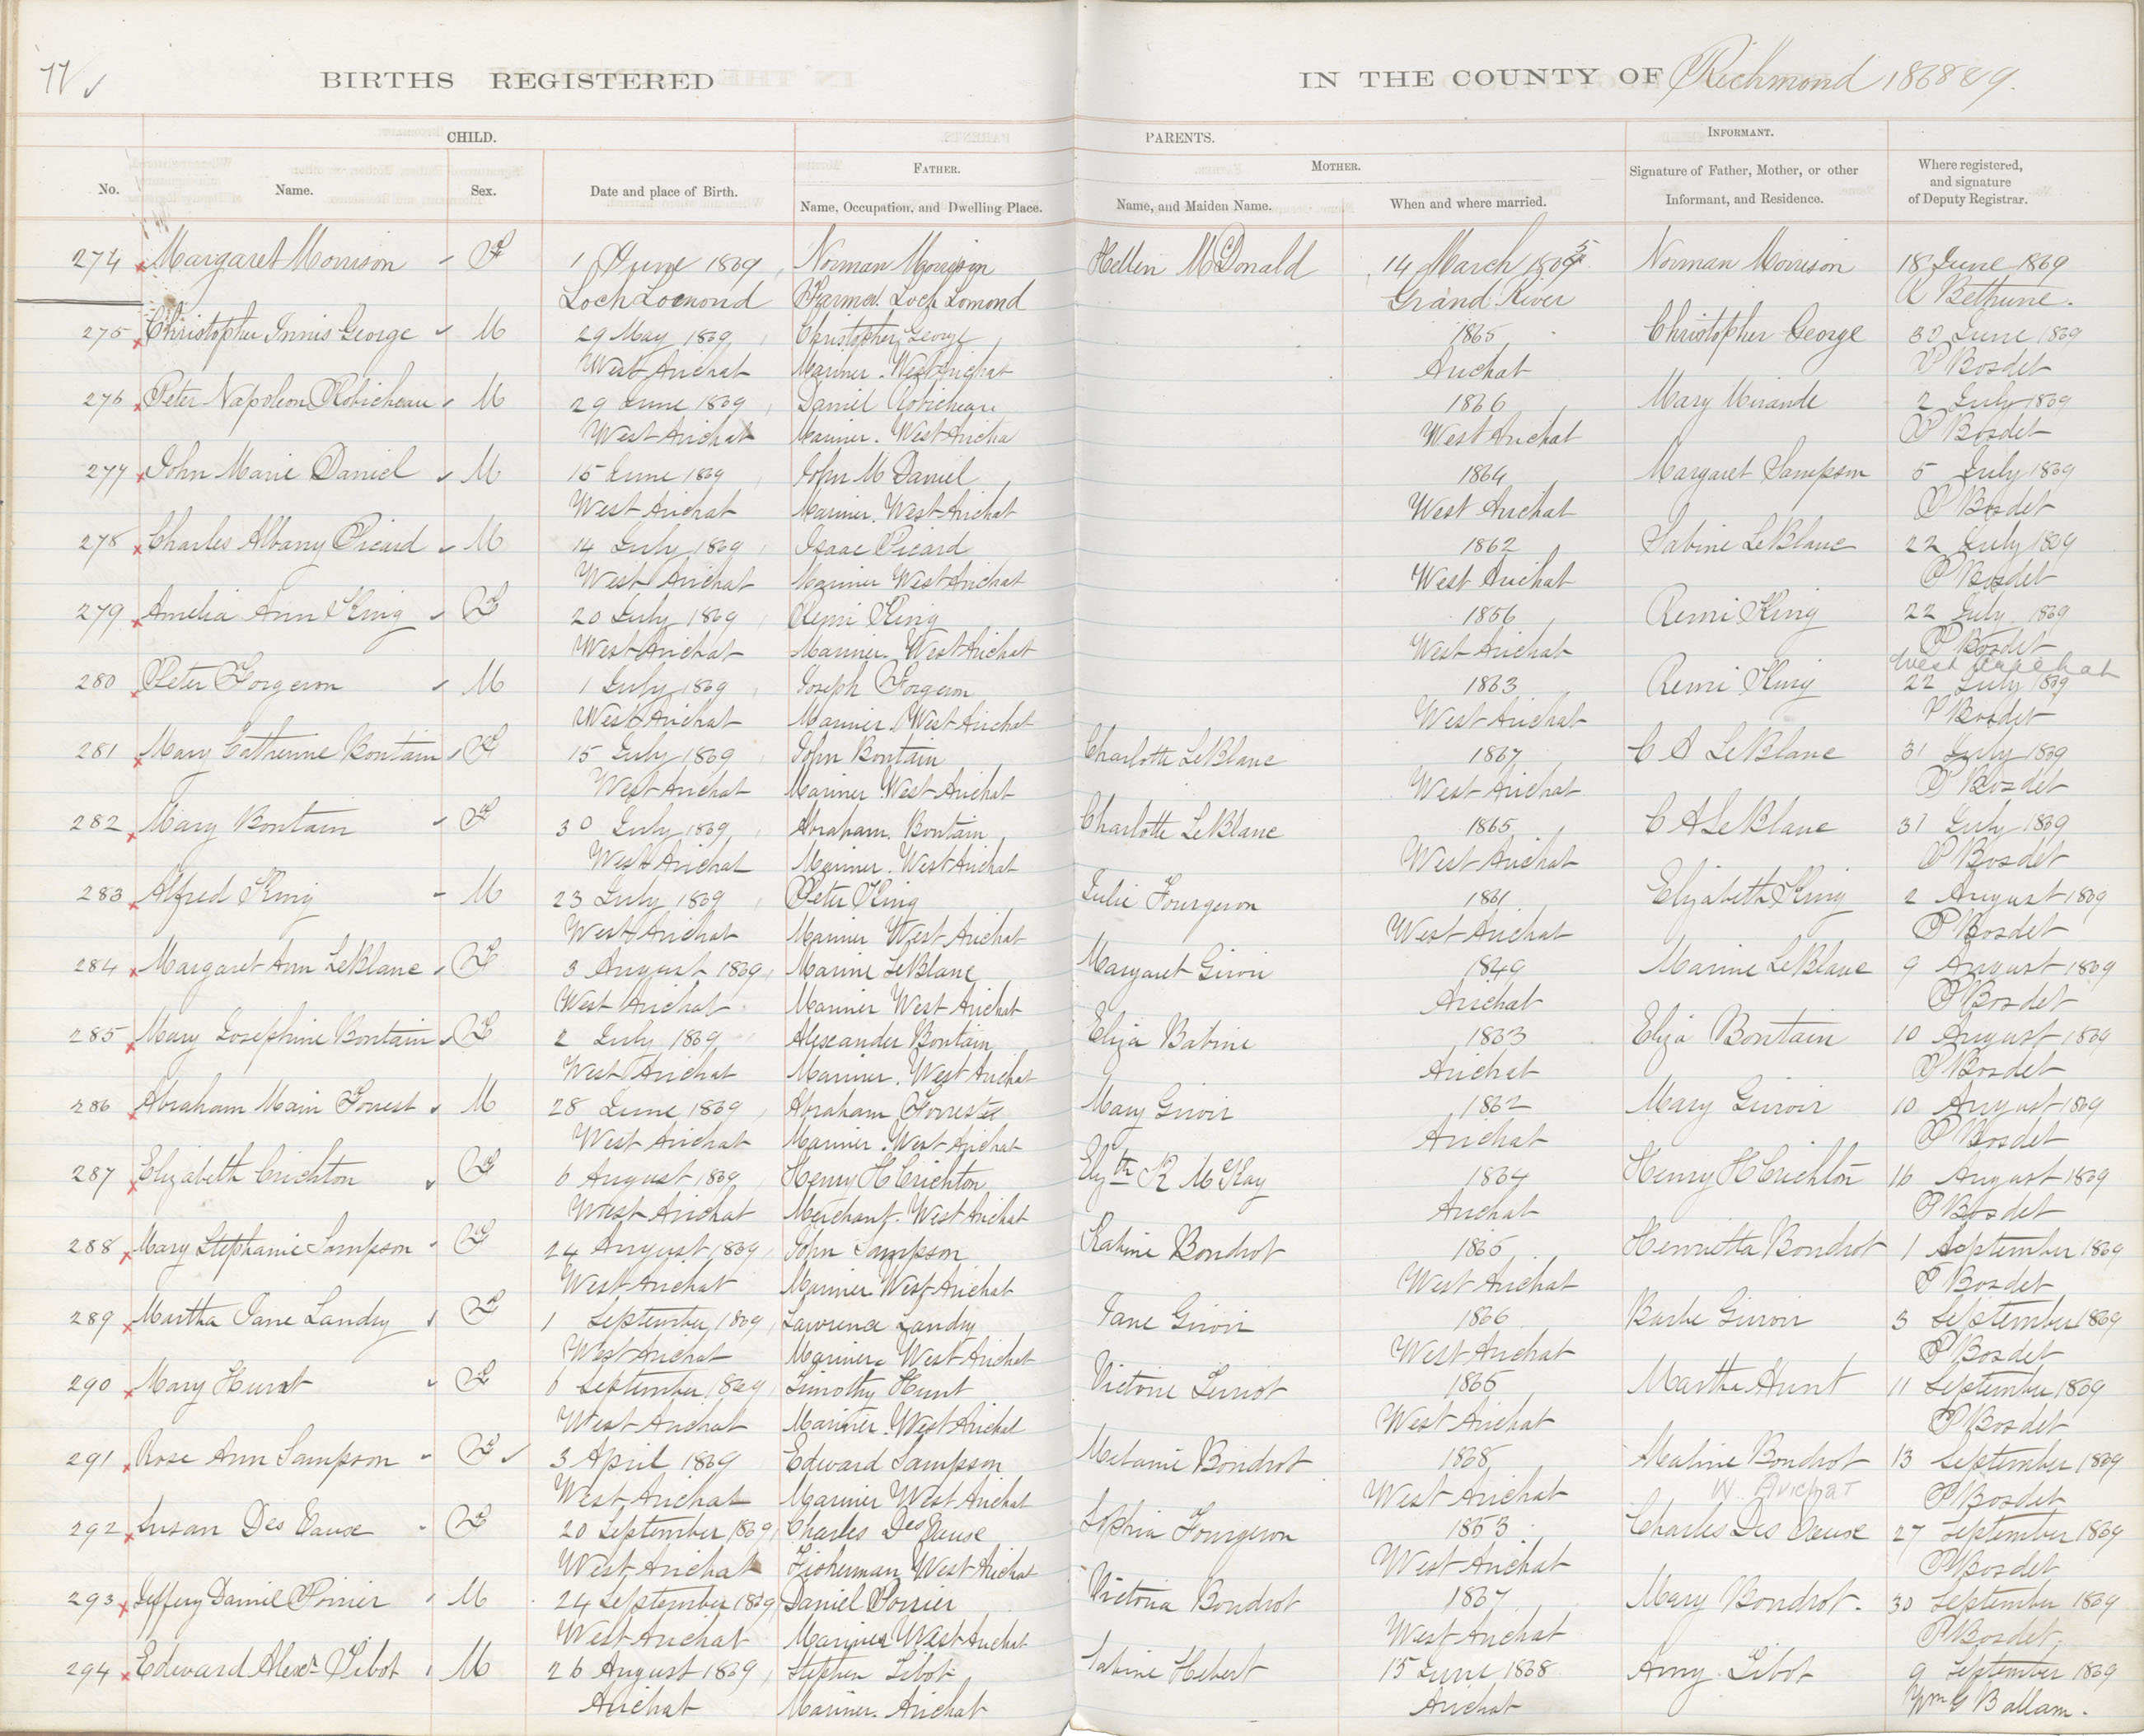 77
BIRTHS REGISTERED IN THE COUNTY OF Richmond 1868 & 9.
CHILD. PARENTS. INFORMANT.
FATHER. MOTHER.
No. Name. Sex. Date and place of Birth. Name, Occupation, and Dwelling Place. Name, and Maiden Name. When and where married. Signature of Father, Mother, or other Informant, and Residence. Where registered, and signature of Deputy Registrar.
274 Margaret Morrison F 1 June 1869 Norman Morrison Hellen McDonald 14 March 1865 Norman Morrison 18 June 1869
Loch Lomond Farmer. Loch Lomond Grand River R Bethune.
275 Christopher Innis George M 29 May 1869 Christopher George 1865 Christopher George 30 June 1869
West Arichat Mariner. West Arichat Arichat P Bosdet
276 Peter Napoleon Robicheau M 29 June 1869 Daniel Robicheau 1866 Mary Mirande 2 July 1869
West Arichat Mariner. West Aricha West Arichat P Bosdet
277 John Marie Daniel M 15 June 1869 John M Daniel 1864 Margaret Sampson 5 July 1869
West Arichat Mariner. West Arichat West Arichat P Bosdet
278 Charles Albany Picard M 14 July 1869 Isaac Picard 1862 Sabine LeBlanc 22 July 1869
West Arichat Mariner West Arichat West Arichat P Bosdet
279 Amelia Ann King F 20 July 1869 Remi King 1856 Remi King 22 July 1869
West Arichat Mariner. West Arichat West Arichat P Bosdet
West Arichat
280 Peter Forgeron M 1 July 1869 Joseph Forgeron 1863 Remi King 22 July 1869
West Arichat Mariner. West Arichat West Arichat P Bosdet
281 Mary Catherine Bontain F 15 July 1869 John Bontain Charlotte LeBlanc 1867 C A LeBlanc 31 July 1869
West Arichat Mariner. West Arichat West Arichat P Bosdet
282 Mary Bontain F 30 July 1869 Abraham Bontain Charlotte LeBlanc 1865 C A LeBlanc 31 July 1869
West Arichat Mariner. West Arichat West Arichat P Bosdet
283 Alfred King M 23 July 1869 Peter King Julie Fourgeron 1861 Elizabeth King 2 August 1869
West Arichat Mariner West Arichat West Arichat P Bosdet
284 Margaret Ann LeBlanc F 3 August 1869 Marine LeBlanc Margaret Giroir 1849 Marine LeBlanc 9 August 1869
West Arichat Mariner West Arichat Arichat P Bosdet
285 Mary Josephine Bontain F 2 July 1869 Alexander Bontain Eliza Babine 1863 Eliza Bontain 10 August 1869
West Arichat Mariner. West Arichat Arichat P Bosdet
286 Abraham Main Forrest M 28 June 1869 Abraham Forrest Mary Giroir 1862 Mary Giroir 10 August 1869
West Arichat Mariner. West Arichat Arichat P Bosdet
287 Elizabeth Crichton F 6 August 1869 Henry H Crichton Elizth R McKay 1864 Henry H Crichton 16 August 1869
West Arichat Merchant. West Arichat Arichat P Bosdet
288 Mary Stephanie Sampson F 24 August 1869 John Sampson Katine Bondrot 1865 Henrietta Bondrot 1 September 1869
West Arichat Mariner West Arichat West Arichat P Bosdet
289 Martha Jane Landry F 1 September 1869 Lawrence Landry Jane Giroir 1866 Barbe Giroir 3 September 1869
West Arichat Mariner. West Arichat West Arichat P Bosdet
290 Mary Hunt F 6 September 1869 Timothy Hunt Victorie Terriot 1865 Martha Hunt 11 September 1869
West Arichat Mariner. West Arichat West Arichat P Bosdet
291 Rose Ann Sampson F 3 April 1869 Edward Sampson Melanie Bondrot 1868 Maline Bondrot 13 September 1869
West Arichat Mariner West Arichat West Arichat W. Arichat P Bosdet
292 Susan Des Vause F 20 September 1869 Charles Des Vause Sophia Fourgeron 1853 Charles Des Vause 27 September 1869
West Arichat Fisherman West Arichat West Arichat P Bosdet
293 Jeffery Daniel Poirier M 24 September 1869 Daniel Poirier Victoria Bondrot 1867 Mary Bondrot. 30 September 1869
West Arichat Mariner West Arichat West Arichat P Bosdet
294 Edward Alexr Libot M 26 August 1869 Stephen Libot Sabine Hebert 15 June 1868 Amy Libot 9 September 1869
Arichat Mariner. Arichat Arichat Wm G Ballam.